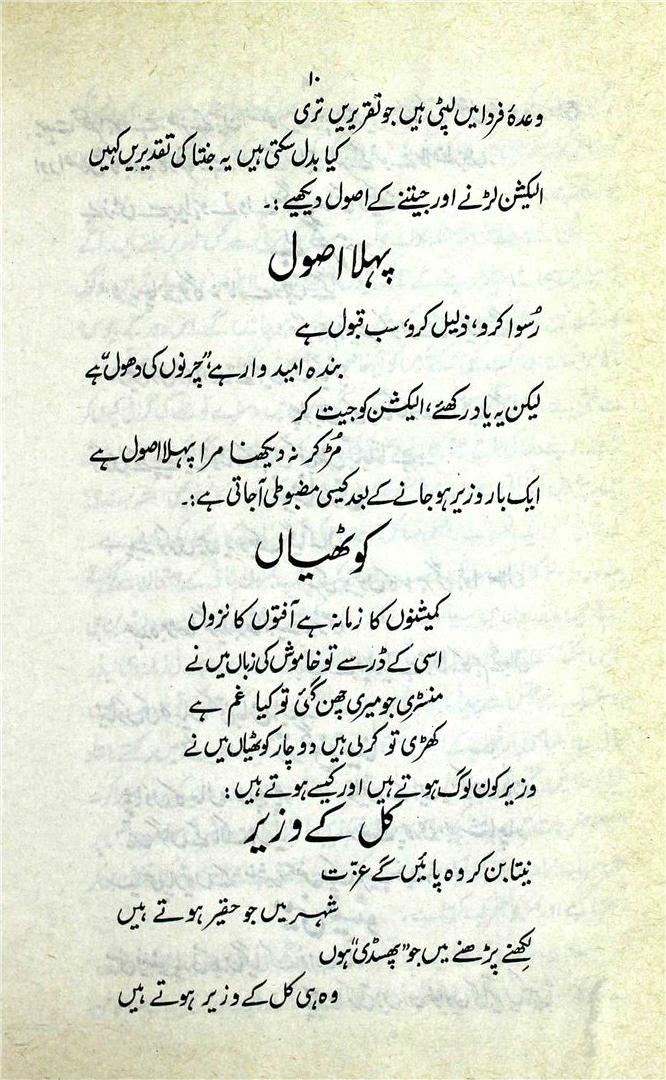 ۱۰
وعدۂ فردا میں لپٹی ہیں جو تقریریں تری
کیا بدل سکتی ہیں یہ جنتا کی تقدیریں کہیں
الیکشن لڑنے اور جیتنے کے اصول دیکھیے :۔
پہلا اصول
رُسوا کرو، ذلیل کرو، سب قبول ہے
بندہ امیدوار ہے، "چرنوں کی دھول" ہے
لیکن یہ یاد رکھئے، الیکشن کو جیت کر
مُڑ کر نہ دیکھنا مرا پہلا اصول ہے
ایک بار وزیر ہو جانے کے بعد کیسی مضبوطی آجاتی ہے :۔
کوٹھیاں
کمیشنوں کا زمانہ ہے آفتوں کا نزول
اسی کے ڈر سے تو خاموش کی زباں میں نے
منسٹری جو میری چھن گئی تو کیا غم ہے
کھڑی تو کر لی ہیں دو چار کوٹھیاں میں نے
وزیر کون لوگ ہوتے ہیں اور کیسے ہوتے ہیں :
کل کے وزیر
نیتا بن کر وہ پائیں گے عزّت
شہر میں جو حقیر ہوتے ہیں
لکھنے پڑھنے میں جو "پھسڈی" ہوں
وہ ہی کل کے وزیر ہوتے ہیں